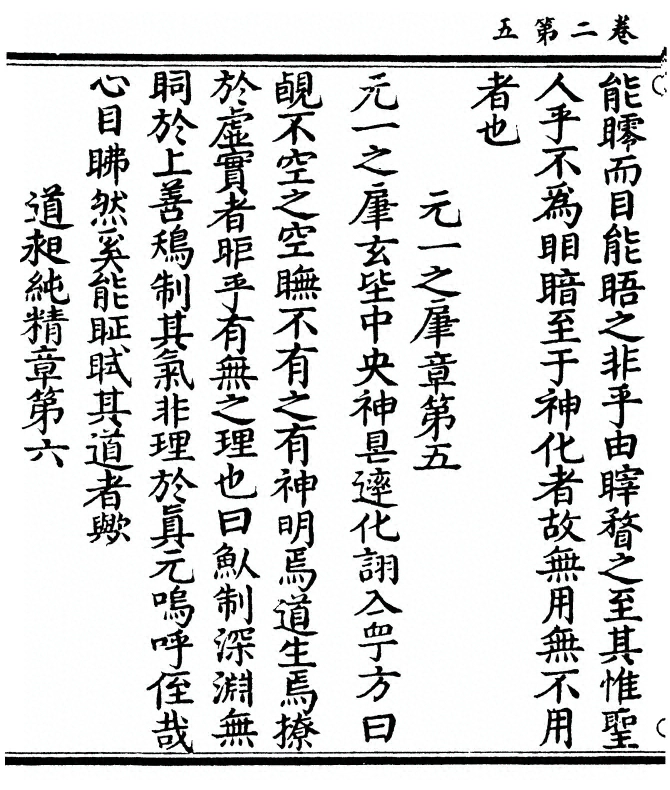 卷二第五
能矃而目能晤之非乎由瞕瞀之至其惟聖
人乎不為眀暗至于神化者故無用無不用
者也
元一之章第五
元一之玄中央神達化詡入方曰
不空之空瞴不有之有神明焉道生焉撩
於虛實者乎有無之理也曰制深淵無
於上善制其氣非理於真元嗚呼侄哉
心目然奚能其道者歟
道純精章第六